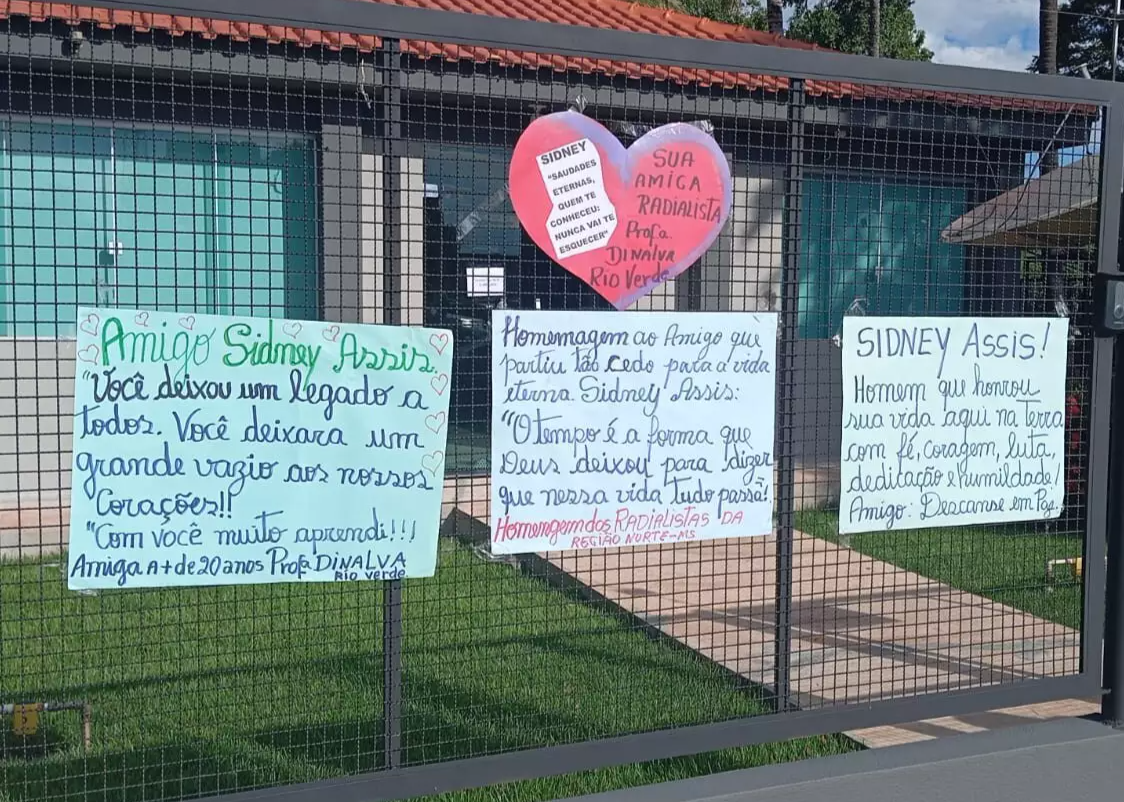 SIDNEY
"SAUDADES
ETERNAS,
QUEM TE
CONHECEU:
NUNCA VAI TE
ESQUECER"
SUA
AMIGA
RADIALISTA
Profa.
DINALVA
RIO Verde
Amigo Sidney Assis.
"Você deixou um legado a
todos. Você deixara um
grande vazio aos nossos
Corações!!
"Com você muito aprendi!!!
Amiga A + de 20 anos Profa DINALVA
RIO verde
Homemagem ao Amigo que
partiu tão cedo para a vida
eterna Sidney Assis:
"O tempo é a forma que
Deus deixou para dizer
que nessa vida tudo passa!
Homenagem dos RADIALISTAS DA
REGIÃO NORTE-MS
SIDNEY Assis!
Homem que honrou
sua vida aqui na Terra
com fé, coragem, luta,
dedicação e humildade!
Amigo: Descanse em Paz.